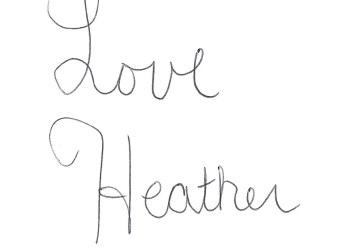 Love
Heather